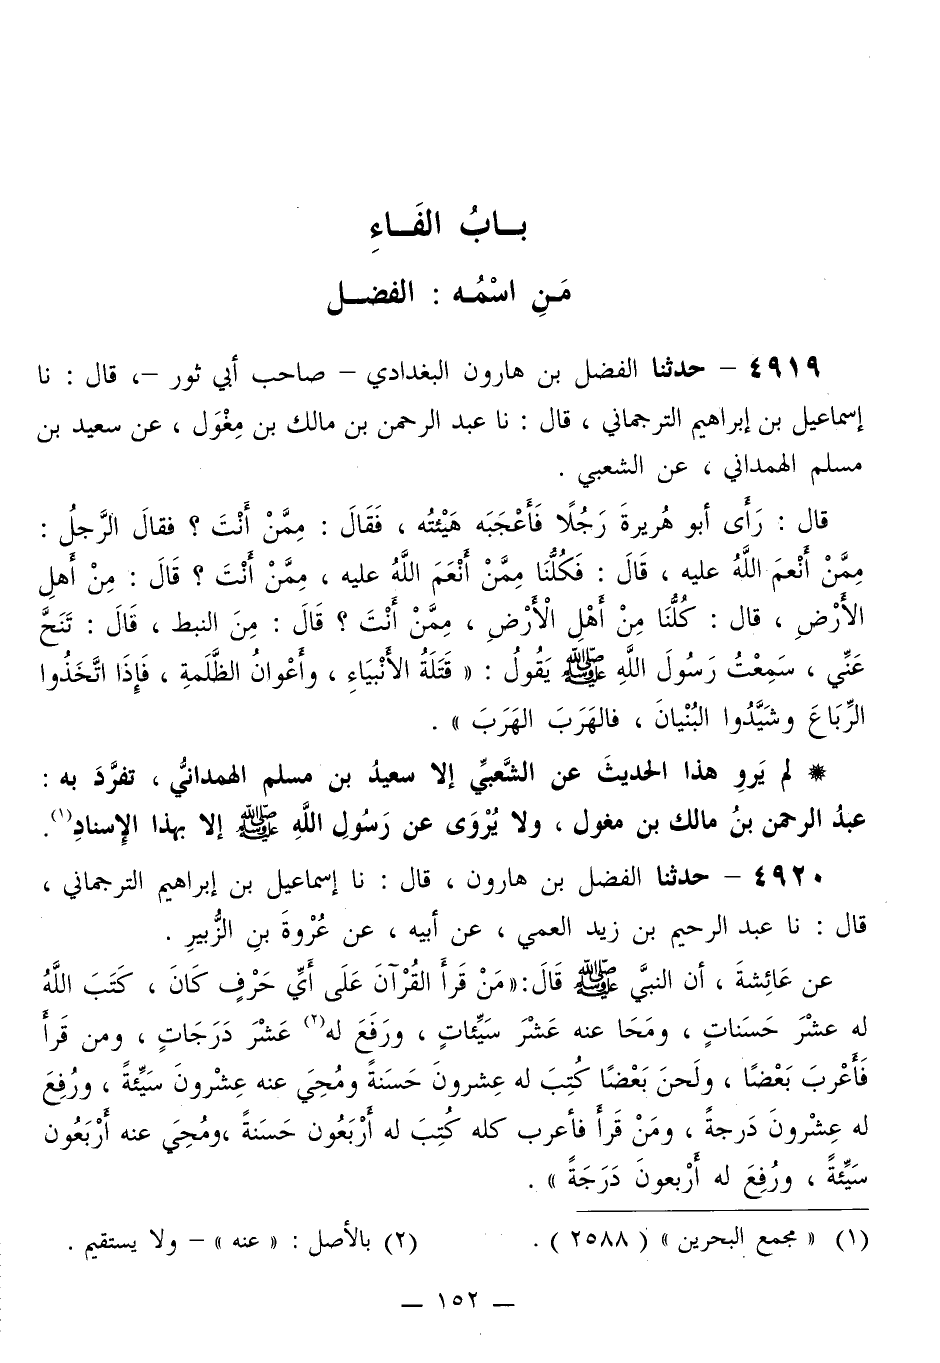 بـــابُ الفَـــاءِ
مَـنِ اسْمُـه : الفضـــل
٤٩١٩ – حدثنا الفضل بن هارون البغدادي – صاحب أبي ثور –، قال : نا
إسماعيل بن إبراهيم الترجماني ، قال : نا عبد الرحمن بن مالك بن مِغْوَل ، عن سعيد بن
مسلم الهمداني ، عن الشعبي .
قال : رَأَى أبو هُريرةَ رَجُلًا فَأَعْجَبَه هَيْئتُه ، فَقَالَ : مِمَّنْ أَنْتَ ؟ فقالَ الرَّجلُ :
مِمَّنْ أَنْعمَ اللَّهُ عليه ، قَالَ : فَكُلُّنَا مِمَّنْ أَنْعَمَ اللَّهُ عليه ، مِمَّنْ أَنْتَ ؟ قَالَ : مِنْ أَهلِ
الأَرْضِ ، قال : كُلُّنَا مِنْ أَهْلِ الْأَرْضِ ، مِمَّنْ أَنْتَ ؟ قَالَ : مِنَ النبط ، قَالَ : تَنَحَّ
عَنِّي ، سَمِعْتُ رَسُولَ اللَّهِ ﷺ يَقُولُ : « قَتَلَةُ الأَنْبَيَاءِ ، وأَعْوانُ الظَّلَمةِ ، فَإِذَا اتَّخَذُوا
الرِّبَاعَ وشَيَّدُوا البُنْيانَ ، فالهَرَبَ الهَرَبَ » .
* لم يَروِ هذا الحديثَ عن الشَّعبيِّ إلا سعيدُ بن مسلم الهمدانيُّ ، تفرَّدَ به :
عبدُ الرحمن بنُ مالك بن مغول ، ولا يُرْوَى عن رَسُولِ اللَّهِ ﷺ إلا بهذا الإِسنادِ(١).
٤٩٢٠ – حدثنا الفضل بن هارون ، قال : نا إسماعيل بن إبراهيم الترجماني ،
قال : نا عبد الرحيم بن زيد العمي ، عن أبيه ، عن عُرْوةَ بنِ الزُّبيرِ .
عن عَائِشةَ ، أن النبيَّ ﷺ قَالَ: «مَنْ قَرأَ القُرْآنَ عَلَى أَيِّ حَرْفٍ كَانَ ، كَتَبَ اللَّهُ
له عشْرَ حَسَناتٍ ، ومَحَا عنه عَشْرَ سَيِّئاتٍ ، ورَفَعَ له(٢) عَشْرَ دَرَجَاتٍ ، ومن قَرأَ
فَأَعْربَ بَعْضًا ، ولَحنَ بَعْضًا كُتِبَ له عِشرونَ حَسَنةً ومُحِيَ عنه عِشْرونَ سَيِّئةً ، ورُفِعَ
له عِشْرونَ دَرجةً ، ومَنْ قَرأَ فأعرب كله كُتِبَ له أَرْبَعُون حَسَنةً ،ومُحِيَ عنه أَرْبَعُون
سَيِّئةً ، ورُفِعَ له أَرْبعونَ دَرَجَةً » .
(١) « مجمع البحرين » ( ٢٥٨٨ ) . (٢) بالأصل : « عنه » – ولا يستقيم .
— ١٥٢ —